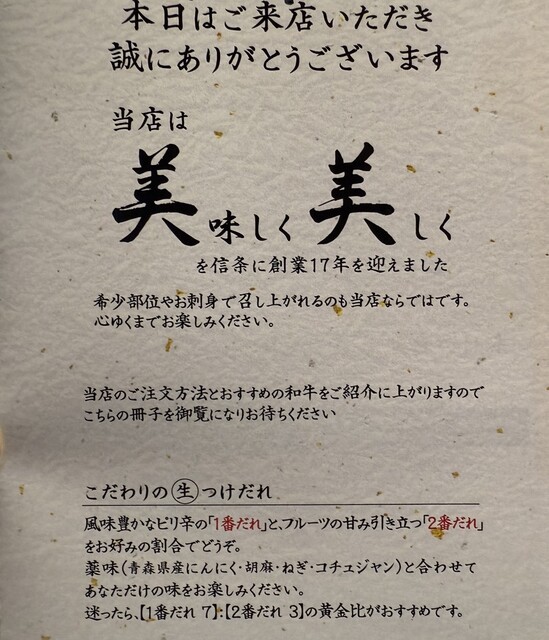 本日はご来店いただき
誠にありがとうございます
当店は
美味しく 美しく
を信条に創業17年を迎えました
希少部位やお刺身で召し上がれるのも当店ならではです。
心ゆくまでお楽しみください。
当店のご注文方法とおすすめの和牛をご紹介に上がりますので
こちらの冊子を御覧になりお待ちください
こだわりの生つけだれ
風味豊かなピリ辛の「1番だれ」と、フルーツの甘み引き立つ「2番だれ」
をお好みの割合でどうぞ。
薬味(青森県産にんにく・胡麻・ねぎ・コチュジャン)と合わせて
あなただけの味をお楽しみください。
迷ったら、【1番だれ 7】:【2番だれ 3】の黄金比がおすすめです。